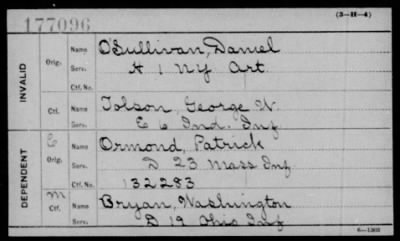 177096
(3-H-4)
INVALID
Orig.
Name
O'Sullivan, Daniel
Serv.
H 1 NY Art.
Ctf. No.
Ctf.
Name
Tolson, George W.
Serv.
E 6 Ind. Inf
DEPENDENT
C
Orig.
Name
Ormond, Patrick
Serv.
D 23 Mass Inf
Ctf. No.
132283
M
Ctf.
Name
Bryan, Washington
Serv.
D 19 Ohio Inf